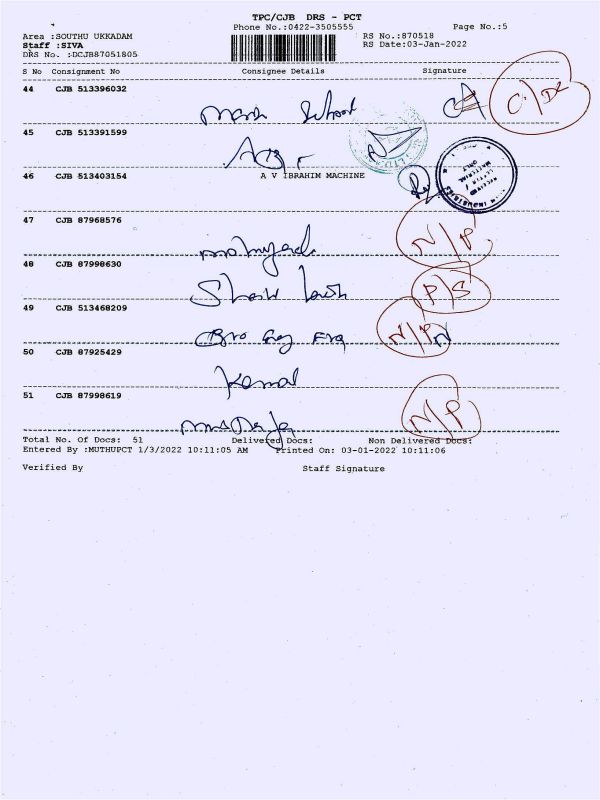 TPC/CJB DRS - PCT
Phone No.:0422-3505555 Page No.:5
Area :SOUTHU UKKADAM RS No.:870518
Staff :SIVA RS Date:03-Jan-2022
DRS No. :DCJB87051805
S No Consignment No Consignee Details Signature
44 CJB 513396032
School
45 CJB 513391599
46 CJB 513403154 A V IBRAHIM MACHINE
47 CJB 87968576 N/P
48 CJB 87998630
P/S
49 CJB 513468209 N/P
50 CJB 87925429
Kamal
51 CJB 87998619 N/P
Total No. Of Docs: 51 Delivered Docs: Non Delivered Docs:
Entered By :MUTHUPCT 1/3/2022 10:11:05 AM Printed On: 03-01-2022 10:11:06
Verified By Staff Signature